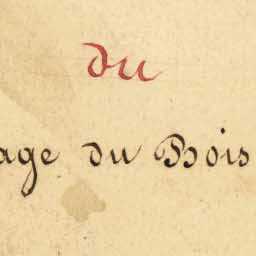 du
age du Bois